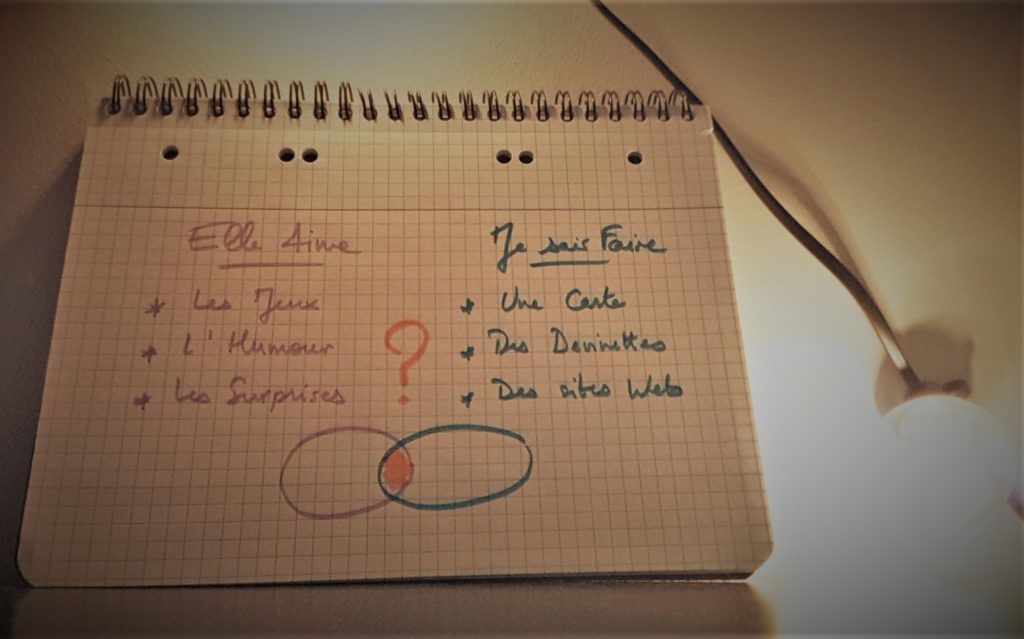 Elle Aime
* Les Jeux
* L'Humour
* Les Surprises
?
Je sais Faire
* Une Carte
* Des Devinettes
* Des sites Web